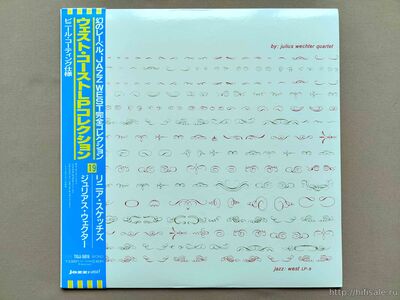 幻のレーベル、JAZZ WEST完全コレクション
ウエスト・コーストLPコレクション
ビニール・コーティング仕様
19
リニア・スケッチズ
ジュリアス・ウェクター
jazz:west
by: julius wechter quartet
jazz: west LP-9
https://hifisale.ru